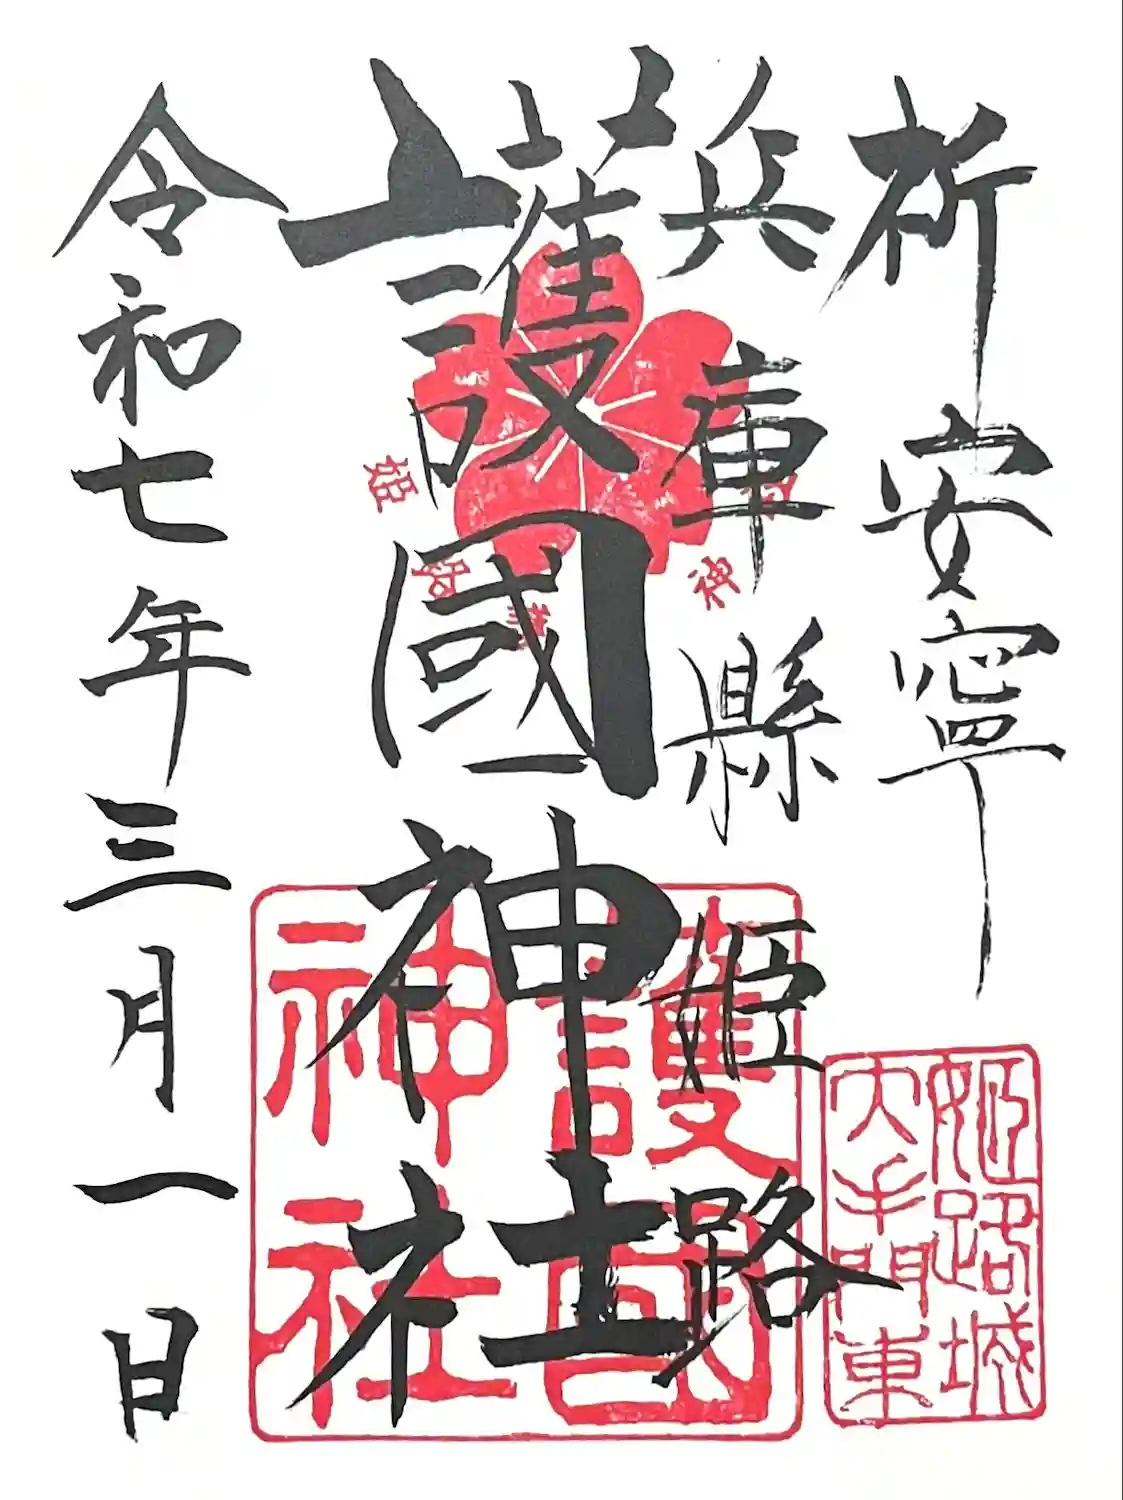 祈安寧
兵庫縣姫路
護國神社
令和七年三月一日
姫路城
大手門東
護國
神社
姫
路
護
神